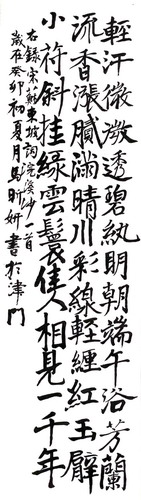 輕汗微微透碧紈明朝端午浴芳蘭
流香漲膩滿晴川彩線輕纏紅玉臂
小符斜挂綠雲鬟佳人相見一千年
右錄宋蘇東坡詞浣溪沙一首
歲在癸卯初夏月馬昕妍書於津門